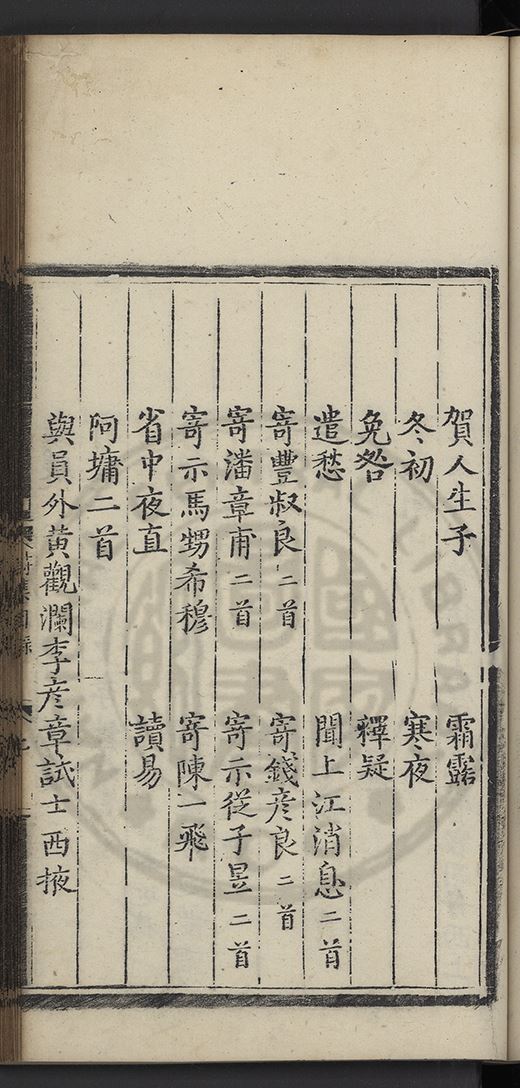 賀人生子　霜露
冬初　寒夜
免咎　釋疑
遣愁　聞上江消息二首
寄豐叔良二首　寄錢彦良二首
寄潘章甫二首　寄示従子昱二首
寄示馬甥希穆　寄陳一飛
省中夜直　讀易
阿墉二首
與員外黃觀瀾李彦章試士西掖